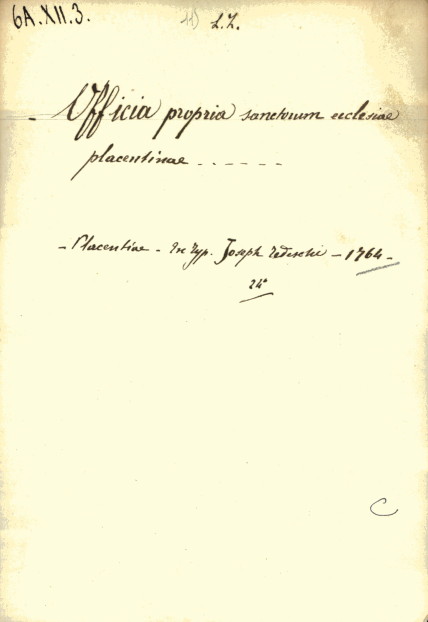 6A.XII.3.
11) L.Z.
- Officia propria sanctorum ecclesiae
placentinae - - - - - -
- Placentiae - Ex typ. Joseph Tedeschi - 1764 -
24°
C